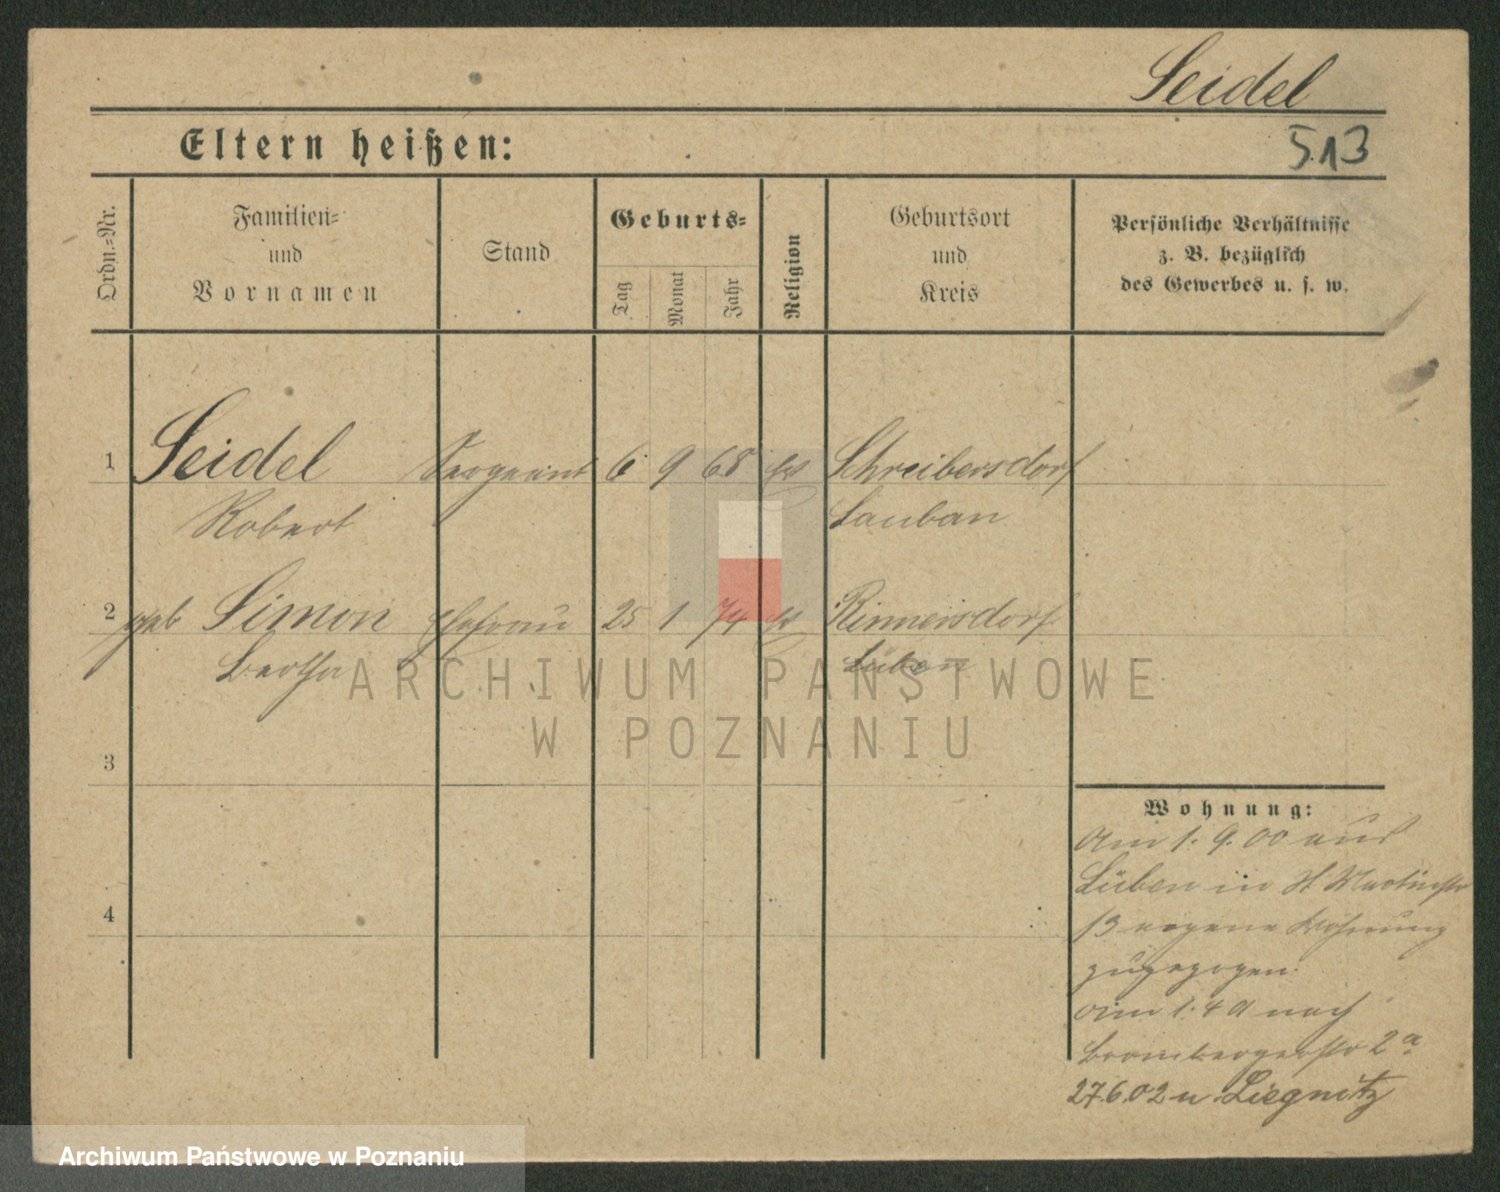 Seidel
Eltern heißen:
513
Ordn.=Nr.
Familien=
und
Vornamen
Stand
Geburts=
Tag
Monat
Jahr
Religion
Geburtsort
und
Kreis
Persönliche Verhältnisse
z. B. bezüglich
des Gewerbes u. s. w.
1 Seidel Sergeant 6 9 68 Schreibersdorf
Robert Lauban
2 geb Simon Ehefrau 25 1 74 Rinnersdorf
Bertha Lüben
ARCHIWUM PAŃSTWOWE
W POZNANIU
3
4
Wohnung:
Am 1.9.00 aus
Lüben in St Martinstr
13 eigene Wohnung
zugezogen.
am 1.4 nach
Brombergerstr 2a
27.6.02 n. Liegnitz
Archiwum Państwowe w Poznaniu